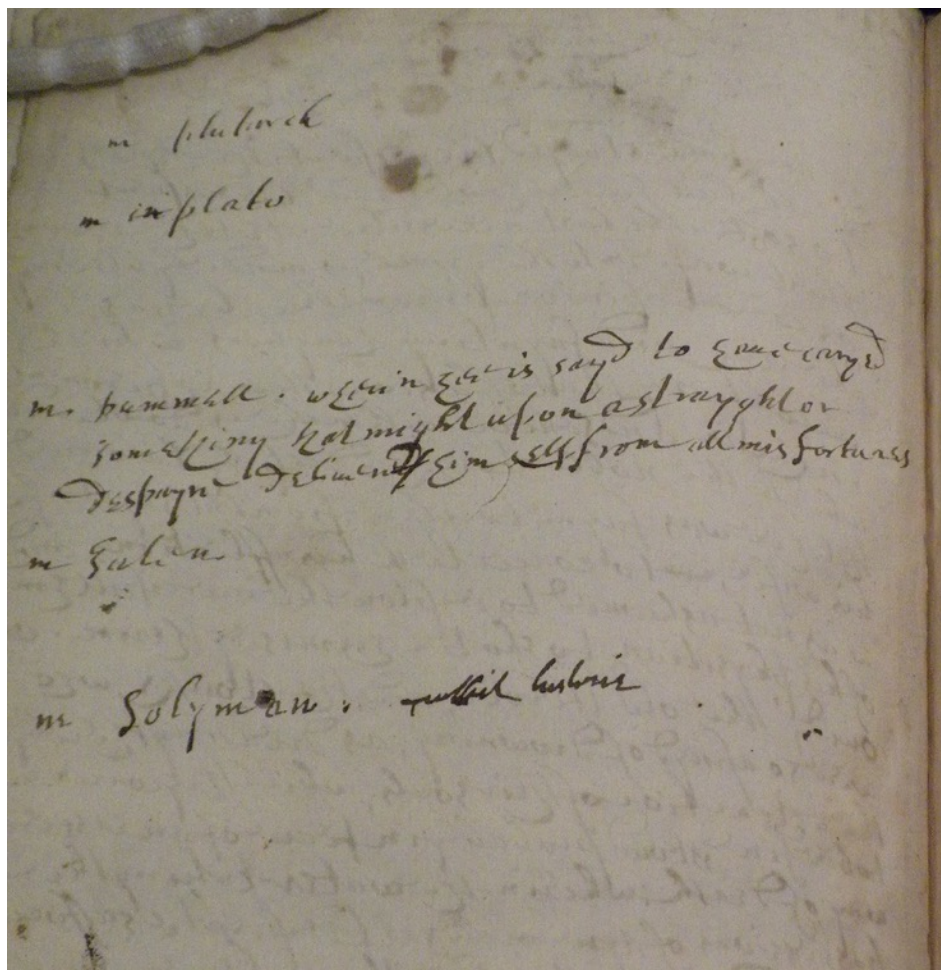 m plutarch
m in plato
m. pummell. wherin hee is sayd to have caryed
something that might upon a strayght or
despayre deliver him self from all misfortunes
m Galen
m Solyman. turkish historie